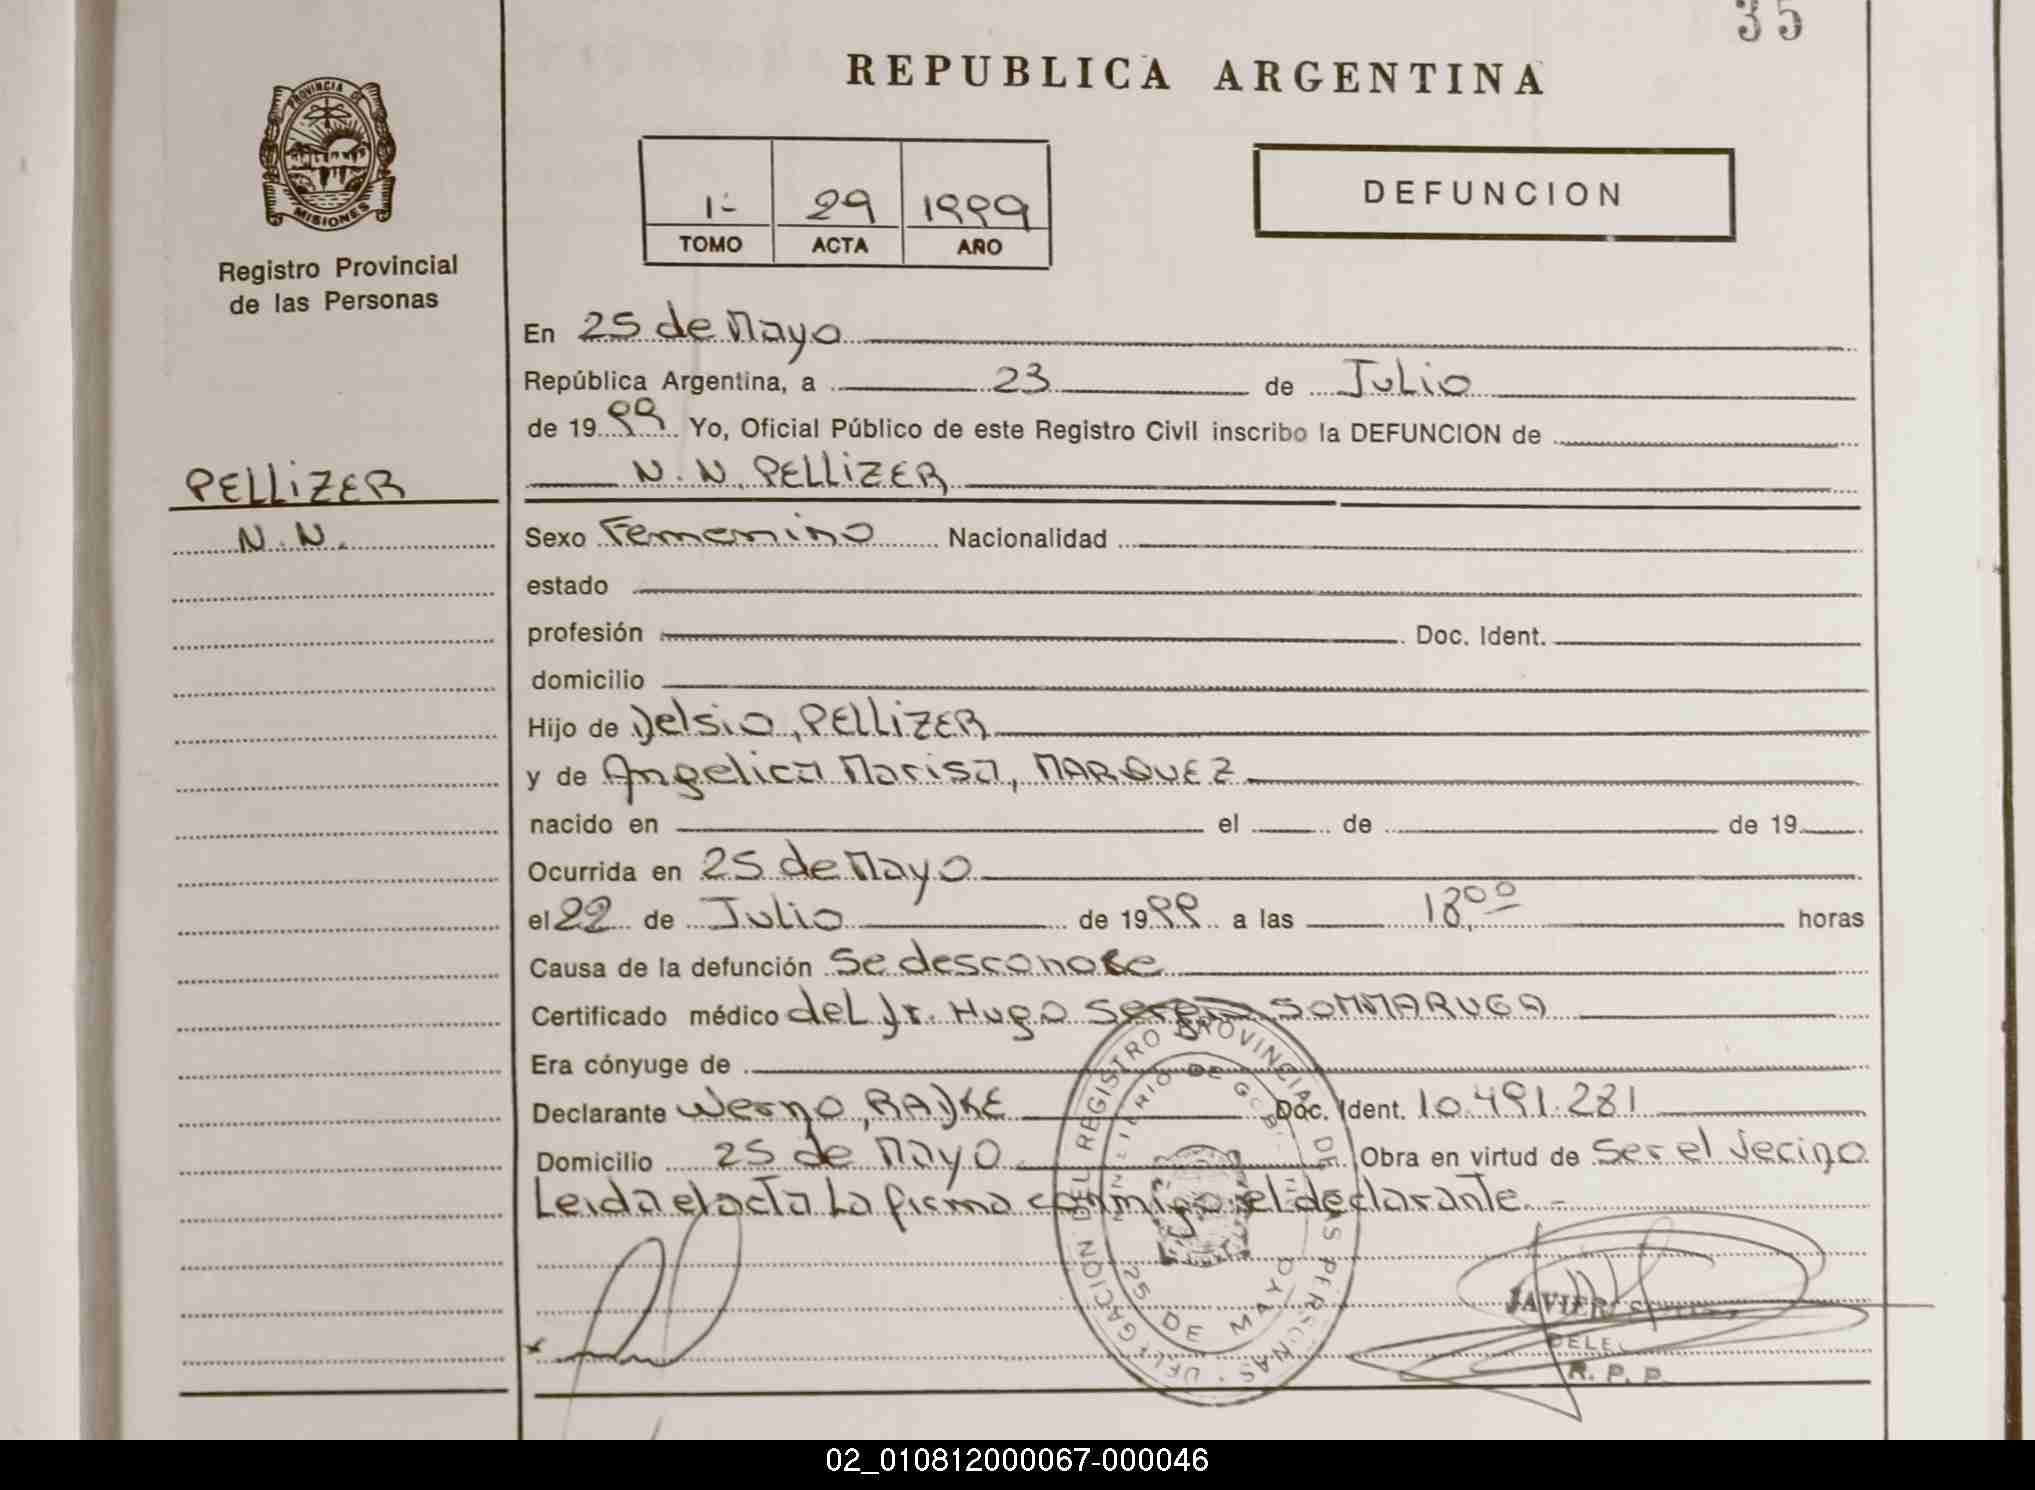 35
REPUBLICA ARGENTINA
PROVINCIA DE
MISIONES
Registro Provincial
de las Personas
1- 29 1999
TOMO ACTA AÑO
DEFUNCION
En 25 de Mayo
República Argentina, a 23 de Julio
de 1999 Yo, Oficial Público de este Registro Civil inscribo la DEFUNCION de
N.N. PELLIZER
PELLIZER
N.N.
Sexo Femenino Nacionalidad
estado
profesión Doc. Ident.
domicilio
Hijo de Delsio, PELLIZER
y de Angelica Marisa, MARQUEZ
nacido en el de de 19
Ocurrida en 25 de Mayo
el 22 de Julio de 1999 a las 18,00 horas
Causa de la defunción Se desconoce
Certificado médico del Dr. Hugo Sergio SOMMARUGA
Era cónyuge de
Declarante Werno, RADKE Doc. Ident. 10.491.281
Domicilio 25 de Mayo Obra en virtud de Ser el vecino
Leida el acta La firma conmigo el declarante.-
DELEGACION DEL REGISTRO PROVINCIAL DE LAS PERSONAS
25 DE MAYO
JAVIER
R. P. P.
02_010812000067-000046